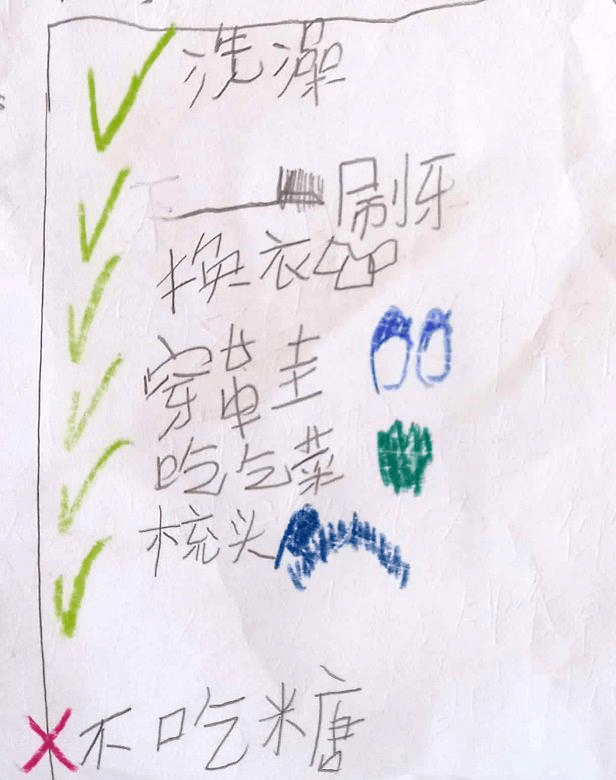 洗澡
刷牙
换衣
穿鞋
吃菜
梳头
不吃糖